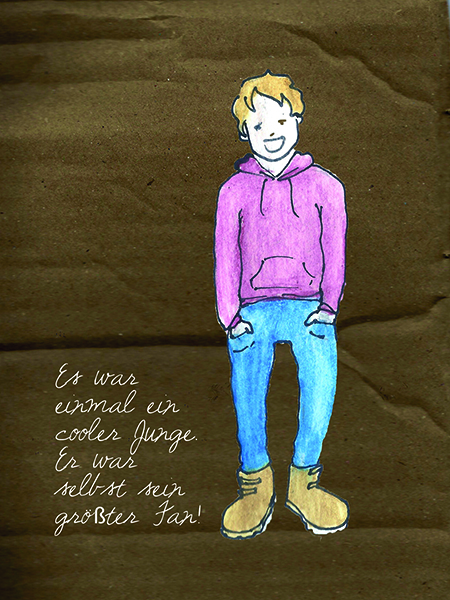 Es war
einmal ein
cooler Junge.
Er war
selbst sein
größter Fan!